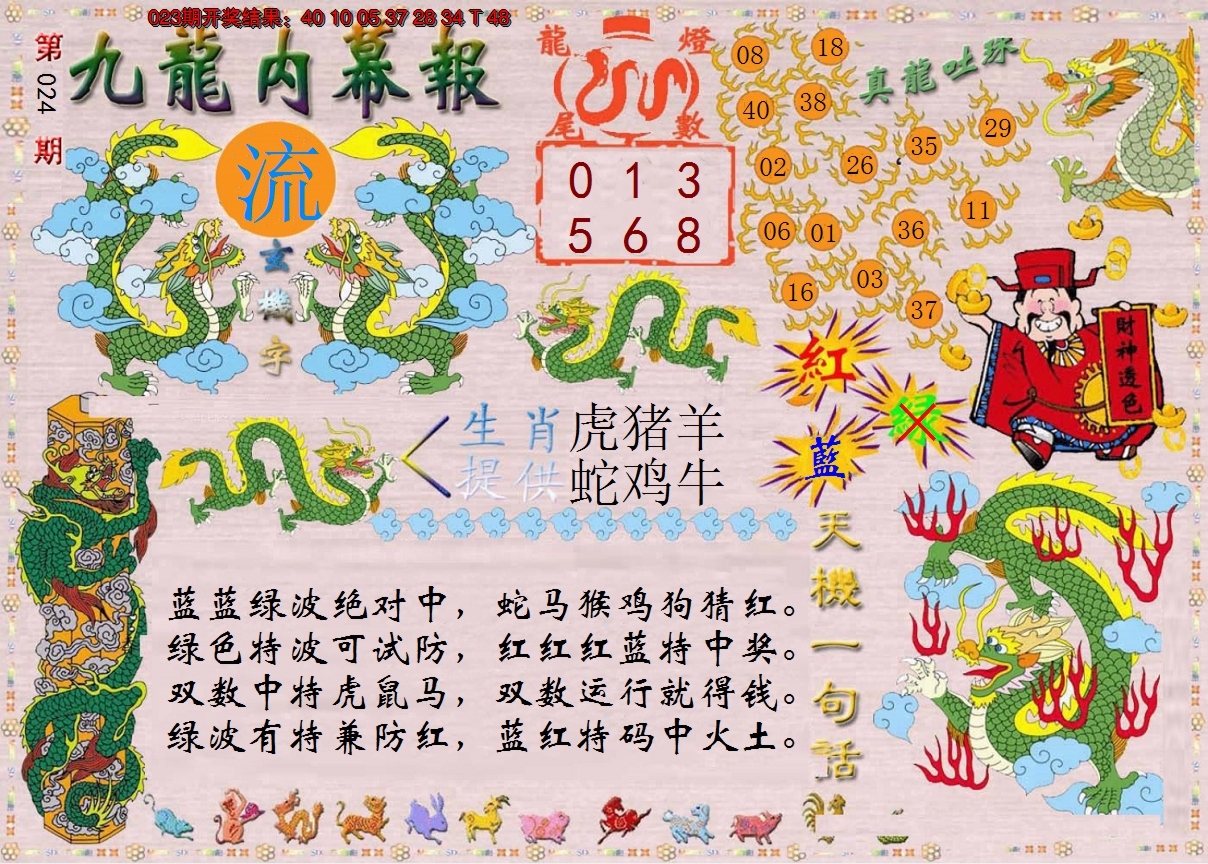 023期开奖结果：40 10 05 37 28 34 T 48
第024期
九龍内幕報
流
玄機字
龍燈
尾數
0 1 3
5 6 8
真龍吐珠
08
18
40
38
35
29
02
26
06
01
36
11
16
03
37
財神透色
紅
绿
藍
生肖提供
虎猪羊
蛇鸡牛
天機一句話
蓝蓝绿波绝对中，蛇马猴鸡狗猜红。
绿色特波可试防，红红红蓝特中奖。
双数中特虎鼠马，双数运行就得钱。
绿波有特兼防红，蓝红特码中火土。